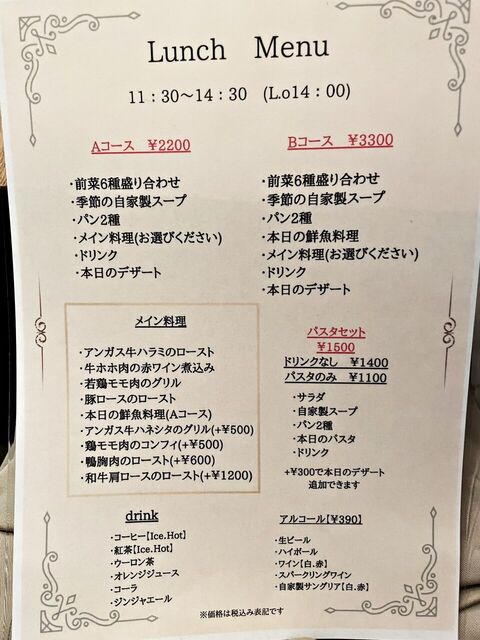 Lunch Menu
11：30～14：30 (L.o14：00)
Aコース ￥2200
・前菜6種盛り合わせ
・季節の自家製スープ
・パン2種
・メイン料理(お選びください)
・ドリンク
・本日のデザート
Bコース ￥3300
・前菜6種盛り合わせ
・季節の自家製スープ
・パン2種
・本日の鮮魚料理
・メイン料理(お選びください)
・ドリンク
・本日のデザート
メイン料理
・アンガス牛ハラミのロースト
・牛ホホ肉の赤ワイン煮込み
・若鶏モモ肉のグリル
・豚ロースのロースト
・本日の鮮魚料理(Aコース)
・アンガス牛ハネシタのグリル(+￥500)
・鶏モモ肉のコンフィ(+￥500)
・鴨胸肉のロースト(+￥600)
・和牛肩ロースのロースト(+￥1200)
パスタセット
￥1500
ドリンクなし ￥1400
パスタのみ ￥1100
・サラダ
・自家製スープ
・パン2種
・本日のパスタ
・ドリンク
+￥300で本日のデザート
追加できます
drink
・コーヒー【Ice.Hot】
・紅茶【Ice.Hot】
・ウーロン茶
・オレンジジュース
・コーラ
・ジンジャエール
アルコール【￥390】
・生ビール
・ハイボール
・ワイン【白.赤】
・スパークリングワイン
・自家製サングリア【白.赤】
※価格は税込み表記です